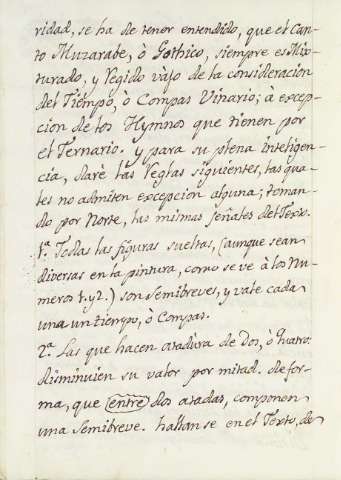 ridad, se ha de tener entendido, que el Can-
to Muzarabe, ò Gothico, siempre es Mix-
turado, y Regido vajo de la consideracion
del Tiempo, ò Compas Vinario; à excep-
cion de los Hymnos que tienen por
el Ternario. Y para su plena inteligen-
cia, darè las Reglas siguientes, las qua-
les no admiten excepcion alguna; toman-
do por Norte, las mismas señales del Texto.
1ª. Todas las figuras sueltas, (aunque sean
diversas en la pintura, como se ve à los Nu-
meros 1. y 2.) son Semibreves, y vale cada
una un tiempo, ò Compas.
2ª. Las que hacen atadura de Dos, ò quatro
disminuien su valor por mitad. de for-
ma, que entre dos atadas, componen
una Semibreve. hallanse en el Texto, de